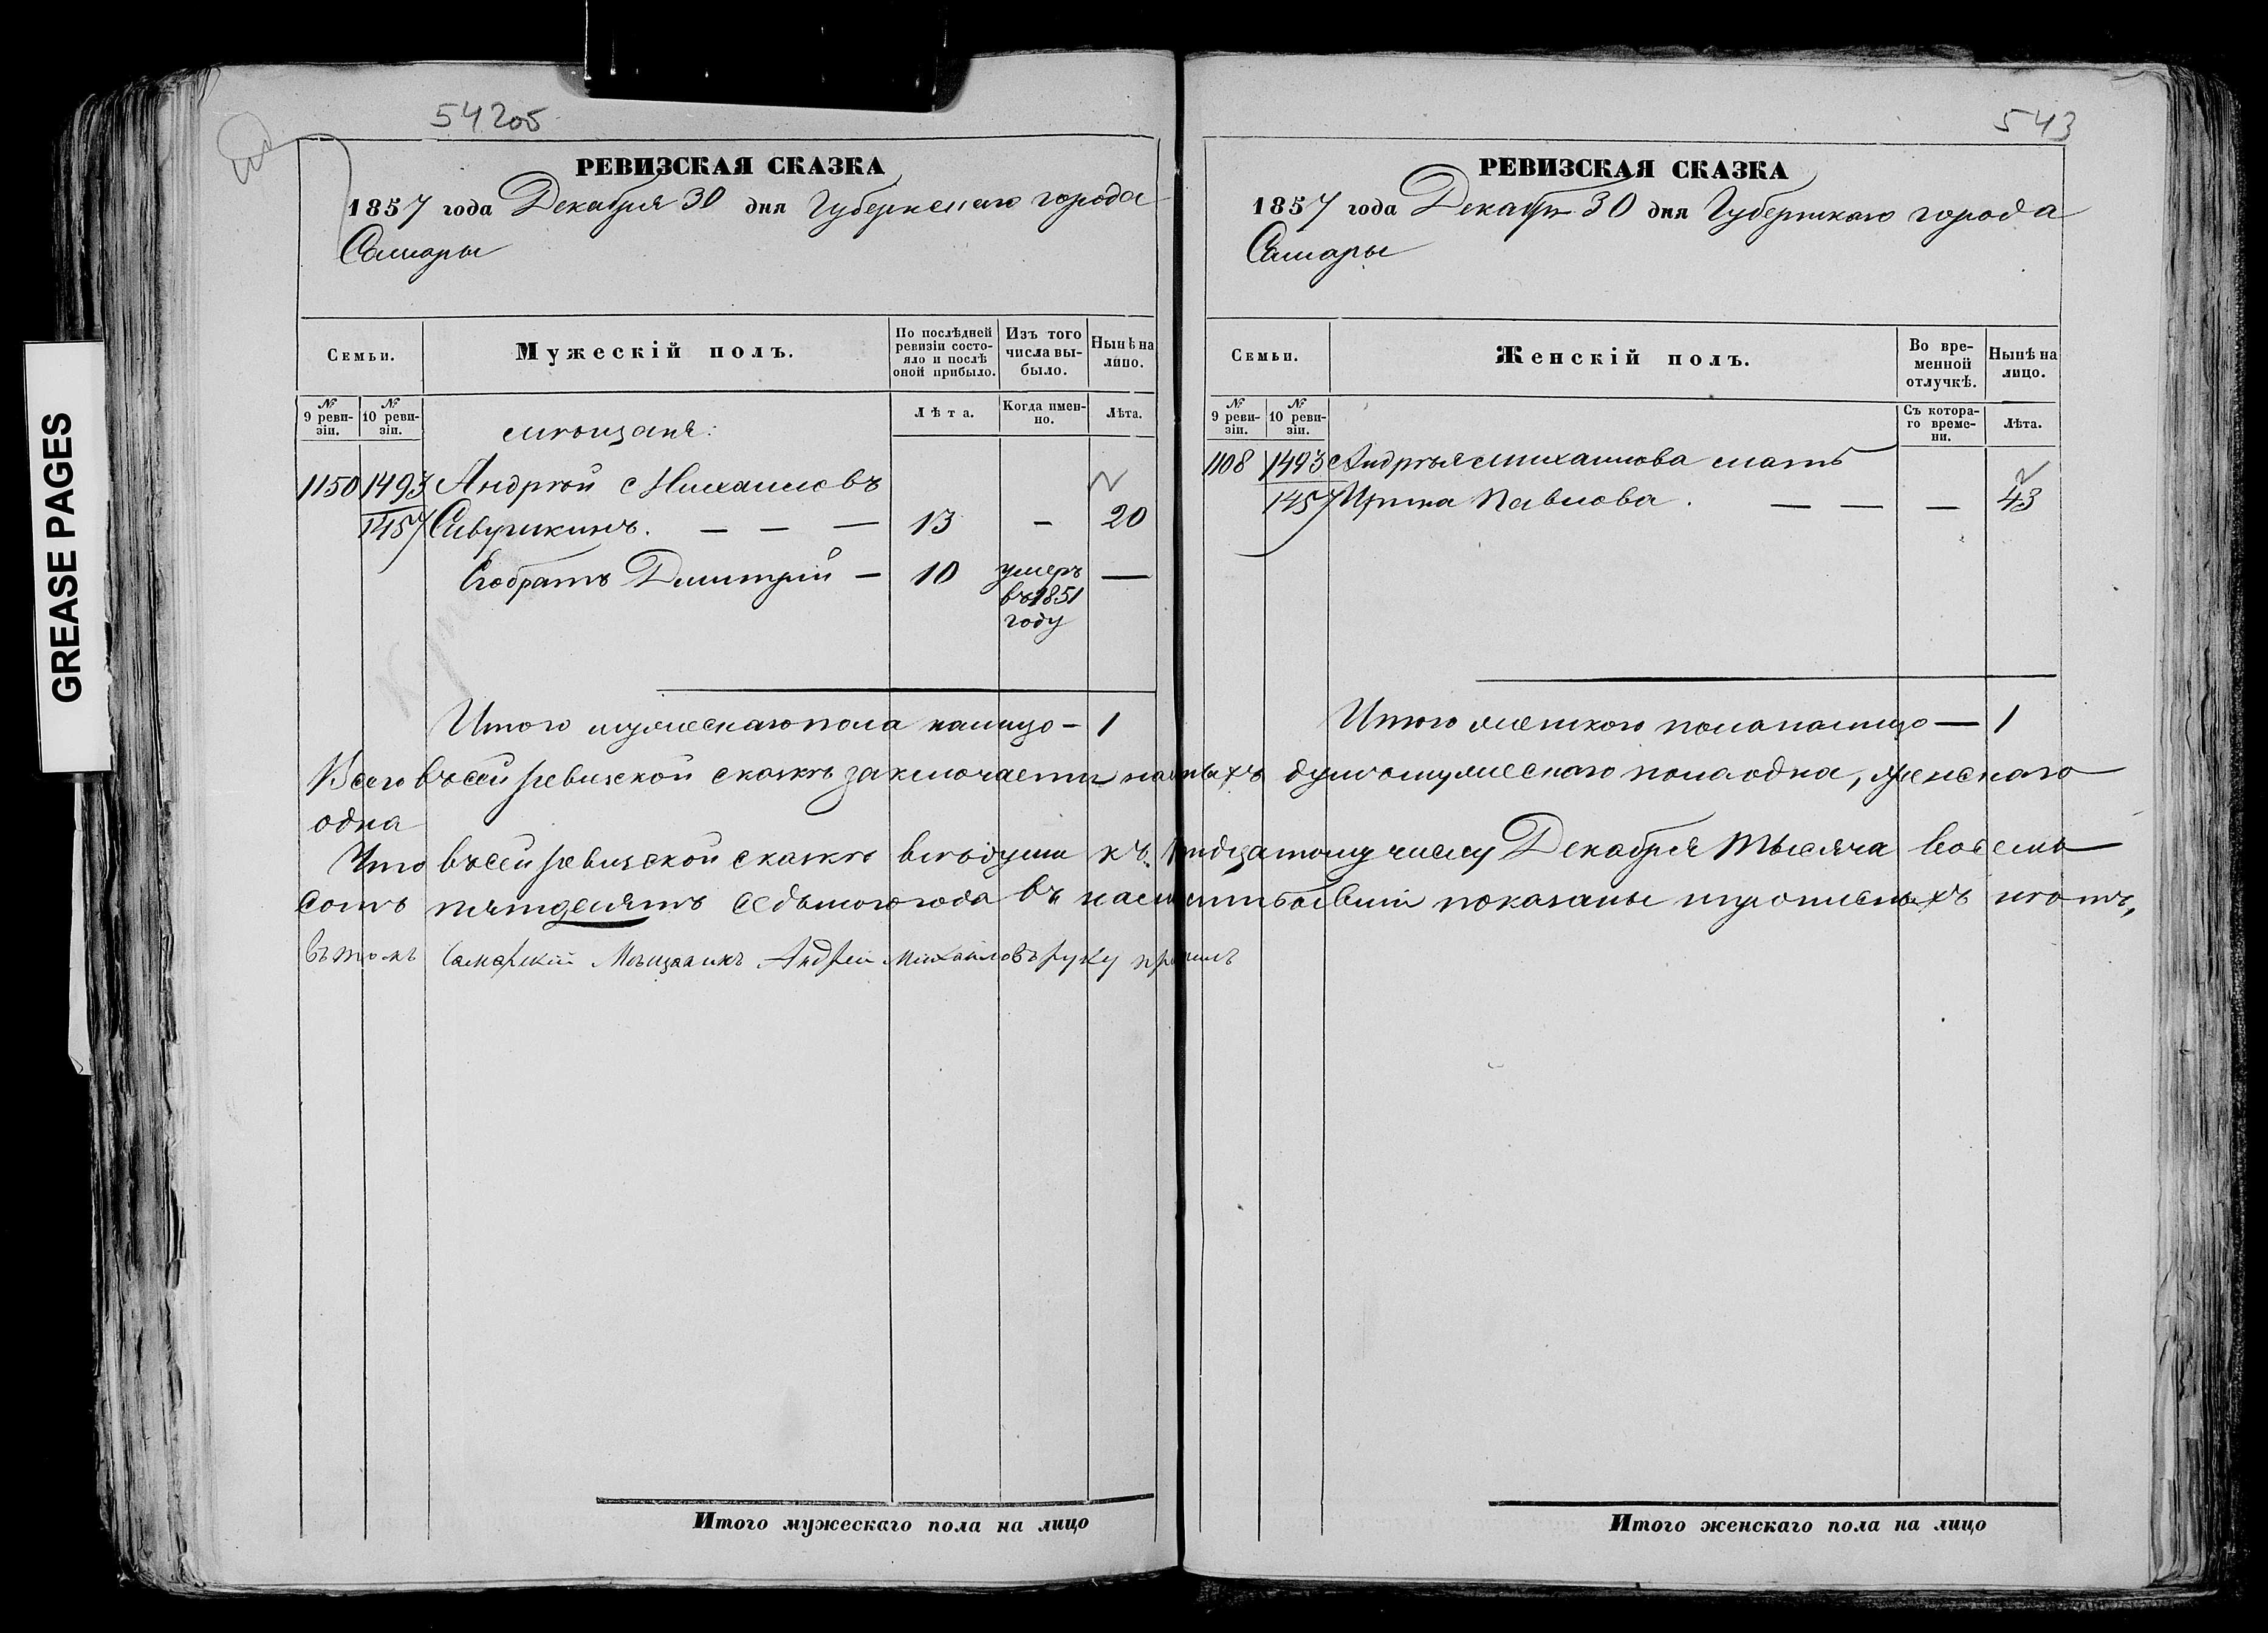 GREASE PAGES
542об
РЕВИЗСКАЯ СКАЗКА
1857 года Декабря 30 дня Губернскаго города
Самары
Семьи.
Мужескій полъ.
По послѣдней ревизіи состо-
яло и послѣ
оной прибыло.
Изъ того
числа вы-
было.
Нынѣ на
лицо.
№ 9 реви-
зіи.
№ 10 реви-
зіи.
Лѣта.
Когда имен-
но.
Лѣта.
мѣщане:
1150 1493 Андрей Михайловъ
1457 Сивушкинъ. — — — 13 — 20
Его братъ Димитрій — 10 умеръ —
въ 1851
году
Итого мужескаго пола налицо — 1
543
РЕВИЗСКАЯ СКАЗКА
1857 года Декабря 30 дня Губернскаго города
Самары
Семьи.
Женскій полъ.
Во вре-
менной
отлучкѣ.
Нынѣ на
лицо.
№ 9 реви-
зіи.
№ 10 реви-
зіи.
Съ котора-
го време-
ни.
Лѣта.
1108 1493 Андрея Михайлова мать
1457 Ирина Павлова. — — — 43
Итого женскаго пола налицо — 1
Всего въ сей ревизской сказкѣ заключается наличныхъ душъ мужескаго пола одна, женскаго
одна
Что въ сей ревизской сказкѣ всѣ души къ тридцатому числу Декабря тысяча восемь
сотъ пятдесятъ седьмого года въ наличности бывшія показаны и прописныхъ нѣтъ,
въ томъ Самарскій Мѣщанинъ Андрей Михайловъ руку
Итого мужескаго пола на лицо
Итого женскаго пола на лицо